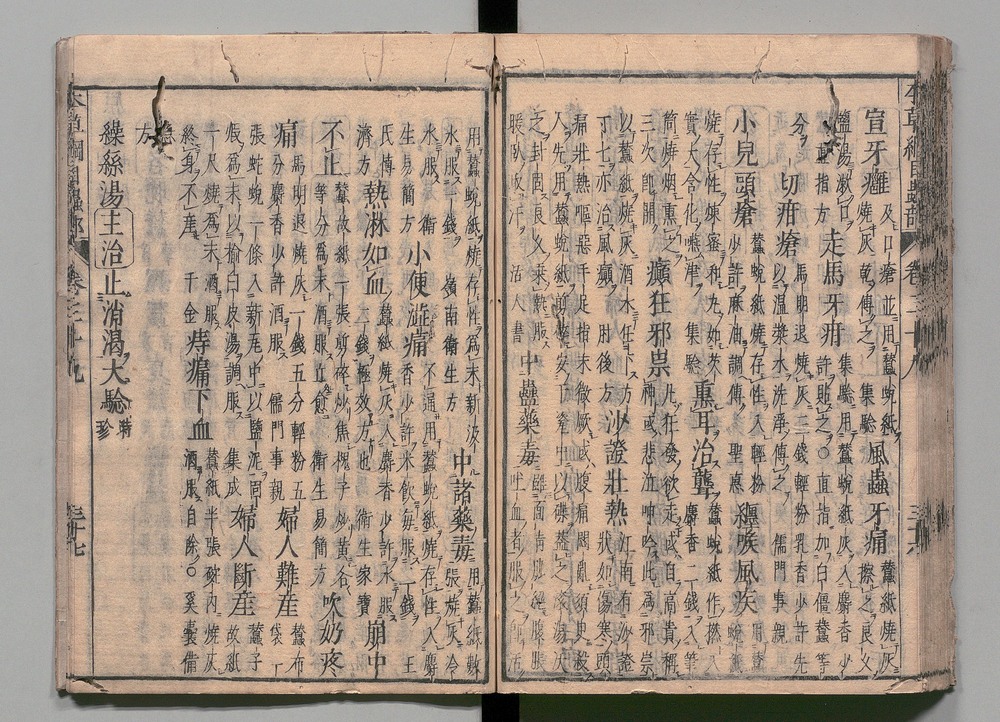 宣牙癰 及口瘡並用蠶蛻紙燒灰乾傅之 集驗 風蟲牙痛 蠶紙燒灰擦之良久
鹽湯漱口 直指方 走馬牙疳 集驗用蠶蛻紙灰入麝香少許貼之〇直指加白僵蠶等
分 一切疳瘡 馬明退燒灰三錢輕粉乳香少許先以溫漿水洗淨傅之 儒門事親
小兒頭瘡 蠶蛻紙燒存性入輕粉少許麻油調傅 聖惠 纏喉風疾 用蠶蛻紙
燒存性煉蜜和丸如芡實大含化嚥津 集驗 熏耳治聾 蠶蛻紙作撚入麝香二錢入筆
筒燒烟熏之三次即開 癲狂邪祟 凡狂發欲走或自高貴稱神或悲泣呻吟此為邪祟
以蠶紙燒灰酒水任下方寸七亦治風癲 肘後方 沙證壯熱 江南有沙證狀如傷寒頭
痛壯熱嘔惡手足指末微厥或腹痛悶亂須臾殺
人先用蠶蛻紙剪碎安於瓷中以碟蓋之滾湯沃
之封固良久乘熱服
暖臥取汗 活人書 中蠱藥毒 雖面青脈絕腹脹吐血者服之即活
用蠶蛻紙燒存性為末新汲水服一錢 嶺南衛生方 中諸藥毒 用蠶紙數張燒灰冷
水服 衛生易簡方 小便澁痛 不通用蠶蛻紙燒存性入麝香少許米飲每服二錢 王
氏博濟方 熱淋如血 蠶紙燒灰入麝香少許水服二錢極效方也 衛生家寶 崩中
不止 蠶故紙一張剪碎炒焦槐子炒黃各等分為末酒服立愈 衛生易簡方 吹奶疼
痛 馬明退燒灰一錢五分輕粉五分麝香少許酒服 儒門事親 婦人難産 蠶布袋一
張蛇蛻一條入新瓦中以鹽泥固煆為末以榆白皮湯調服 集成 婦人斷産 蠶子故紙
一尺燒為末酒服終身不產 千金 痔漏下血 蠶紙半張碗內燒灰酒服自除〇奚囊備
急方
繰絲湯 主治 止消渴大驗 時珍
三十六
三十七